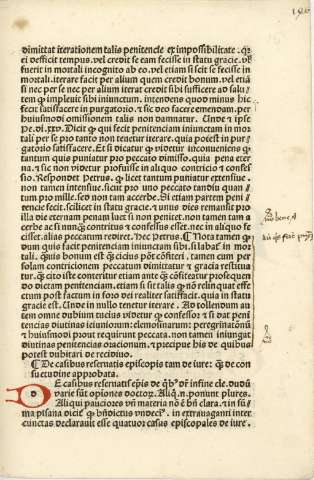 dimittat iterationem talis penitentie ex impossibilitate. qꝛ
ei defficit tempus. vel credit se eam fecisse in statu gracie. vł
fuerit in mortali incognito ab eo. vel etiam si scit se fecisse in
mortali. iterare facit per alium quem credit bonum. vel etiã
si nec per se nec per alium iterat credit sibi sufficere ad salu
tem ꝙ impleuit sibi iniunctum. intendens quod minus hic
fecit satisfacere in purgatorio. ⁊ sic deo facere emendam. per
huiusmodi omissionem talis non damnatur. Unde ⁊ ipse
Pe. di. xxv. Dicit ꝙ qui fecit penitenciam iniunctam in mor
tali per se pro tanto non tenetur iterare. quia potest in pur
gatorio satisfacere. Et si dicatur ꝙ videtur inconueniens ꝙ
tantum quis puniatur pro peccato dimisso. quia pena eter
na. ⁊ sic non videtur profuisse in aliquo contricio ⁊ confes
sio. Respondet Petrus. ꝙ licet tantum puniatur extensiue.
non tamen intensiue. sicut pro uno peccato tandiu quan
tum pro mille. sed non tam acerbe. Si etiam partem peni
tencie fecit. scilicet in statu gracie. ⁊ unius dieo remansit pro
illa die eternam penam luet si non penitet. non tamen tam a
cerbe ac si nunꝙ̃ contritus ⁊ confessus esset. nec in aliquo fe
cisset. alias peccatum rediret. Hec Petrus. ¶ Nota tamen ꝙ
dum quis facit penitenciam iniunctam sibi. si labaſ in mor
tali. ꝙuis bonum est ꝙ cicius pōt cōfiteri. tamen cum per
solam contricionem peccatum dimittatur ⁊ gracia restitua
tur. ꝙ cito iste conteritur etiam ante ꝙ̃ cōfiteatur prosequen
do dictam penitenciam. etiam si sit talis ꝙ nõ relinquat effe
ctum post factum in foro dei realiter satisfacit. quia in statu
gracie est. Unde in nullo tenetur iterare. Ad tollendum au
tem omne dubium tucius videtur ꝙ confessor ⁊ si dat peni
tencias diutinas ieiuniorum: elemosinarum: peregrinacionũ
⁊ huiusmodi prout requirunt peccata. non tamen iniungat
diutinas penitencias oracionum. ⁊ precipue his de quibus
potest dubitari de recidiuo.
¶ De casibus reseruatis episcopis tam de iure: ꝙ̃ de con
suetudine approbata.
DE casibus reseruatis ep̃is de qͥbꝰ dr̃ infine cle. dudũ
varie sũt opiones doctoꝝ. Aliqͥ.n. ponunt plures.
Aliqui pauciores vñ materia nõ ē bñ clara. ⁊ in sũ
ma pisana dicit̃ ꝙ bñdictus vndeciꝰ. in extrauaganti inter
cunctas declarauit esse quatuor casus episcopales de iure.